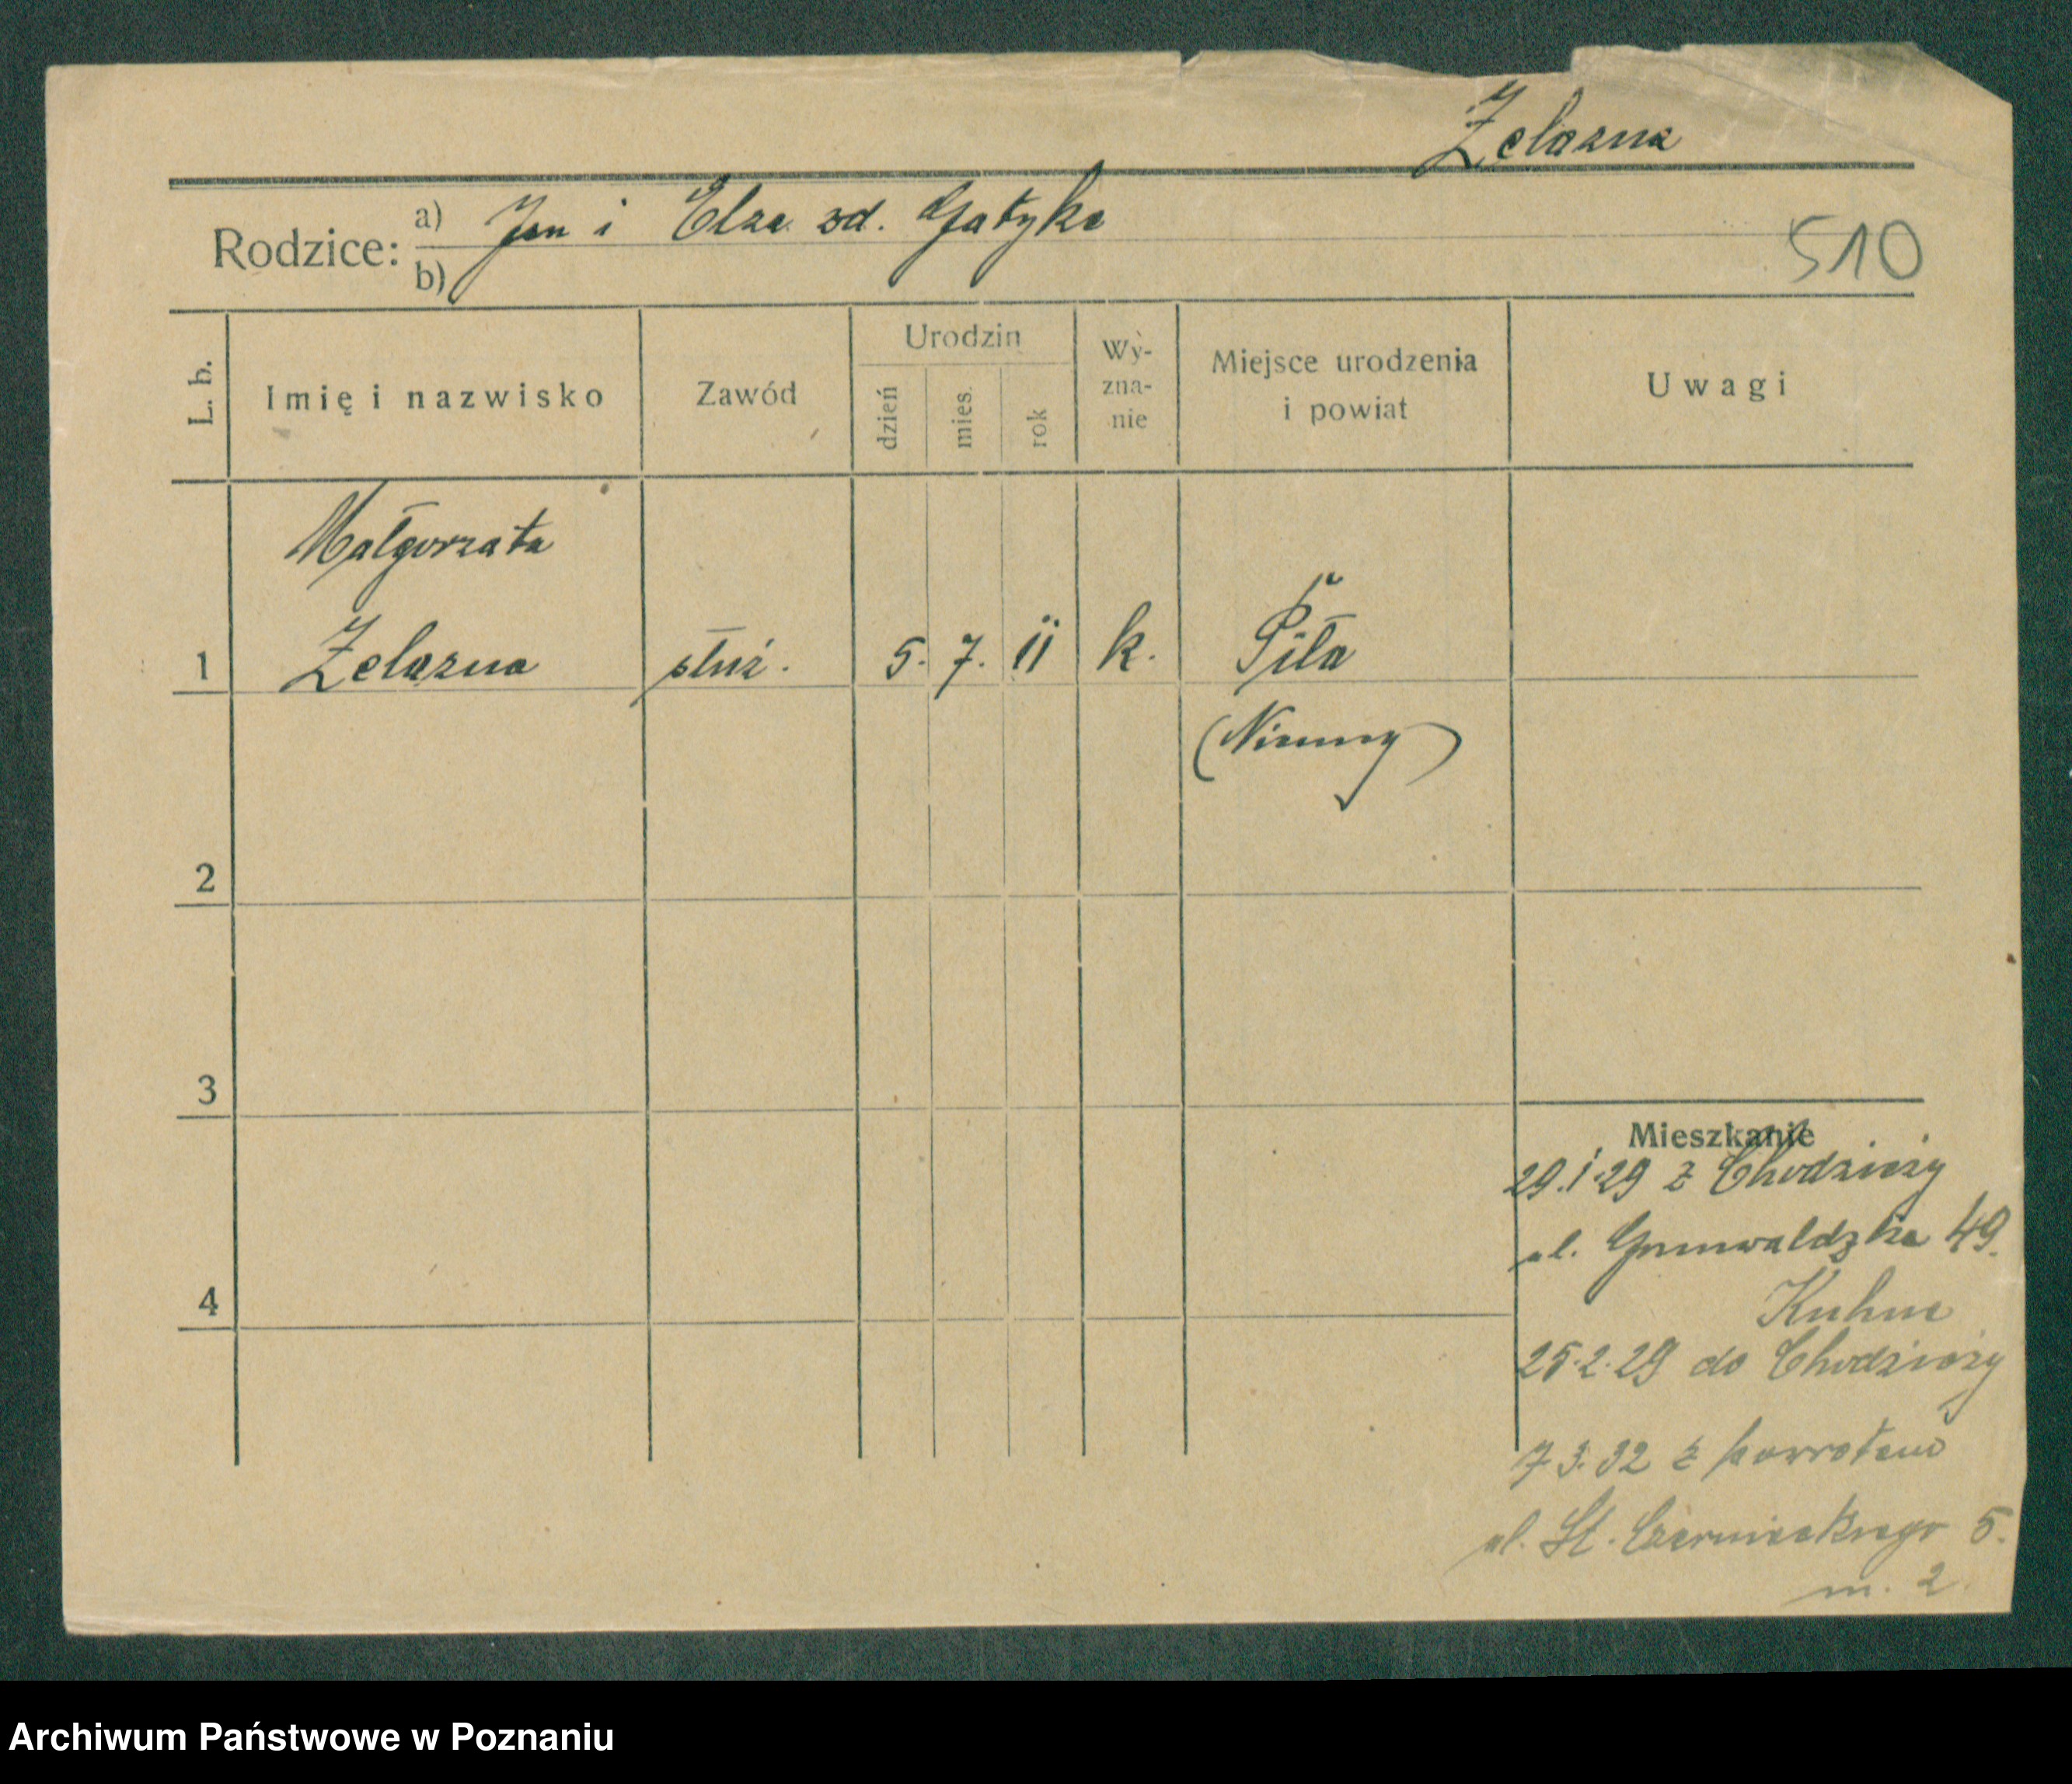 Żelazna
Rodzice: a) Jan i Elza zd. Gatyka
b)
510
L. b.
Imię i nazwisko
Zawód
Urodzin
dzień
mies.
rok
Wy-
zna-
nie
Miejsce urodzenia
i powiat
Uwagi
Małgorzata
1 Żelazna służ. 5. 7. 11 k. Piła
(Niemcy)
2
3
4
Mieszkanie
29.1.29 z Chodzieży
ul. Grunwaldzka 49.
Kuhne
25.2.29 do Chodzieży
7.3.32 z powrotem
ul. St. Czarnieckiego 5.
m. 2
Archiwum Państwowe w Poznaniu